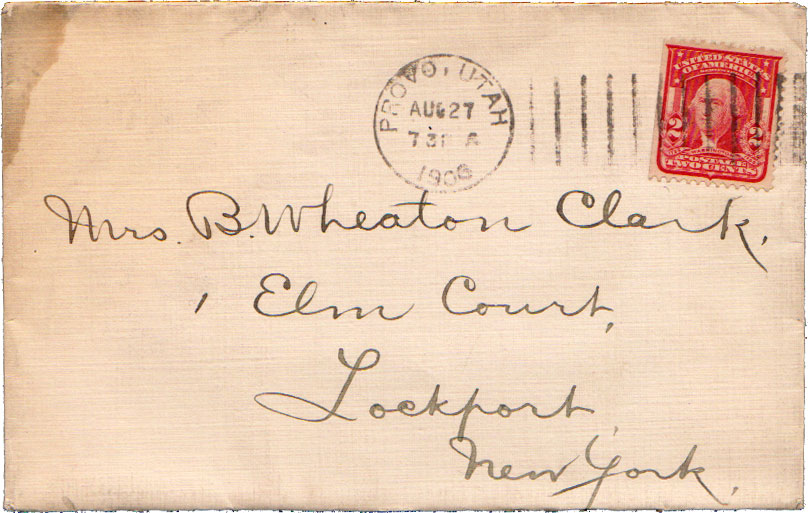 PROVO, UTAH
AUG 27
7 A
UNITED STATES
OF AMERICA
2 2
POSTAGE
TWO CENTS
Mrs. B. Wheaton Clark,
1 Elm Court,
Lockport,
New York.